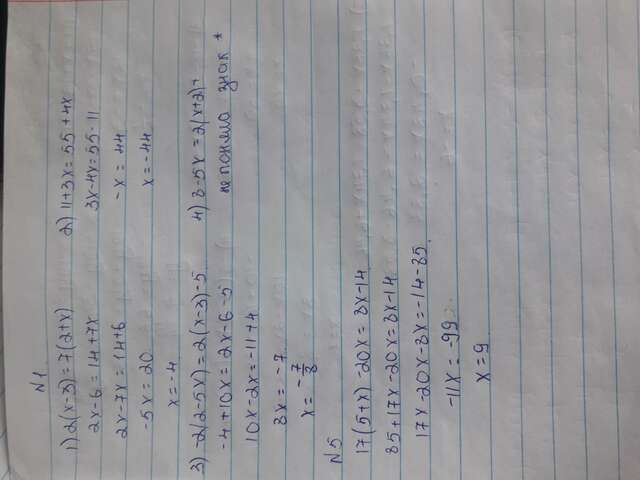 N1
1) 2(x-3)=7(2+x) 2) 11+3x=55+4x
2x-6=14+7x 3x-4x=55-11
2x-7x=14+6 -x=44
-5x=20 x=-44
x=-4
3) -2(2-5x)=2(x-3)-5 4) 3-5x=2(x+2)
-4+10x=2x-6-5 не поняла знак *
10x-2x=-11+4
8x=-7
x=-7/8
N5
17(5+x)-20x=8x-14
85+17x-20x=8x-14
17x-20x-8x=-14-85
-11x=-99
x=9